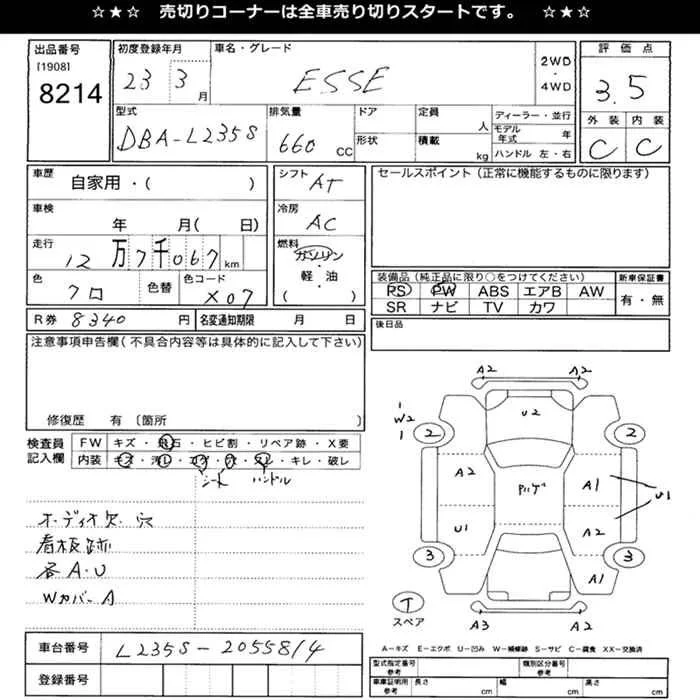 ☆★☆ 売切りコーナーは全車売り切りスタートです。 ☆★☆
出品番号
[1908]
8214
初度登録年月
23 3 月
車名・グレード
ESSE
2WD
・
4WD
評価点
3.5
外装 内装
C C
型式
DBA-L235S
排気量
660 CC
ドア
形状
定員
人
積載
kg
ディーラー・並行
モデル年式 年
ハンドル 左・右
車歴
自家用・( )
車検
年 月( 日)
走行
12万7千067km
色
クロ
色替
色コード
X07
シフト
AT
冷房
AC
燃料
ガソリン
・
軽・油
( )
セールスポイント(正常に機能するものに限ります)
装備品(純正品に限り○をつけてください)
PS PW ABS エアB AW
SR ナビ TV カワ
新車保証書
有・無
R券 8340 円
名変通知期限 月 日
後日品
注意事項申告欄(不具合内容等は具体的に記入して下さい)
修復歴 有 〔箇所 〕
検査員
記入欄
FW キズ・飛石・ヒビ割・リペア跡・X要
内装 キズ・汚レ・コゲ・穴・スレ・キレ・破レ
シート ハンドル
オーディオ欠.穴
看板跡
各A.U
WカバーA
車台番号
L235S-2055814
登録番号
A2 A2
W2
U2
2 2
A2
A1
U1
U1
A2
A1
3 3
T
スペア
A3 A2
A-キズ E-エクボ U-凹み W-補修跡 S-サビ C-腐食 XX-交換済
型式指定番号
参考
類別区分番号
参考
車庫証明用
参考
長さ cm
幅 cm
高さ cm